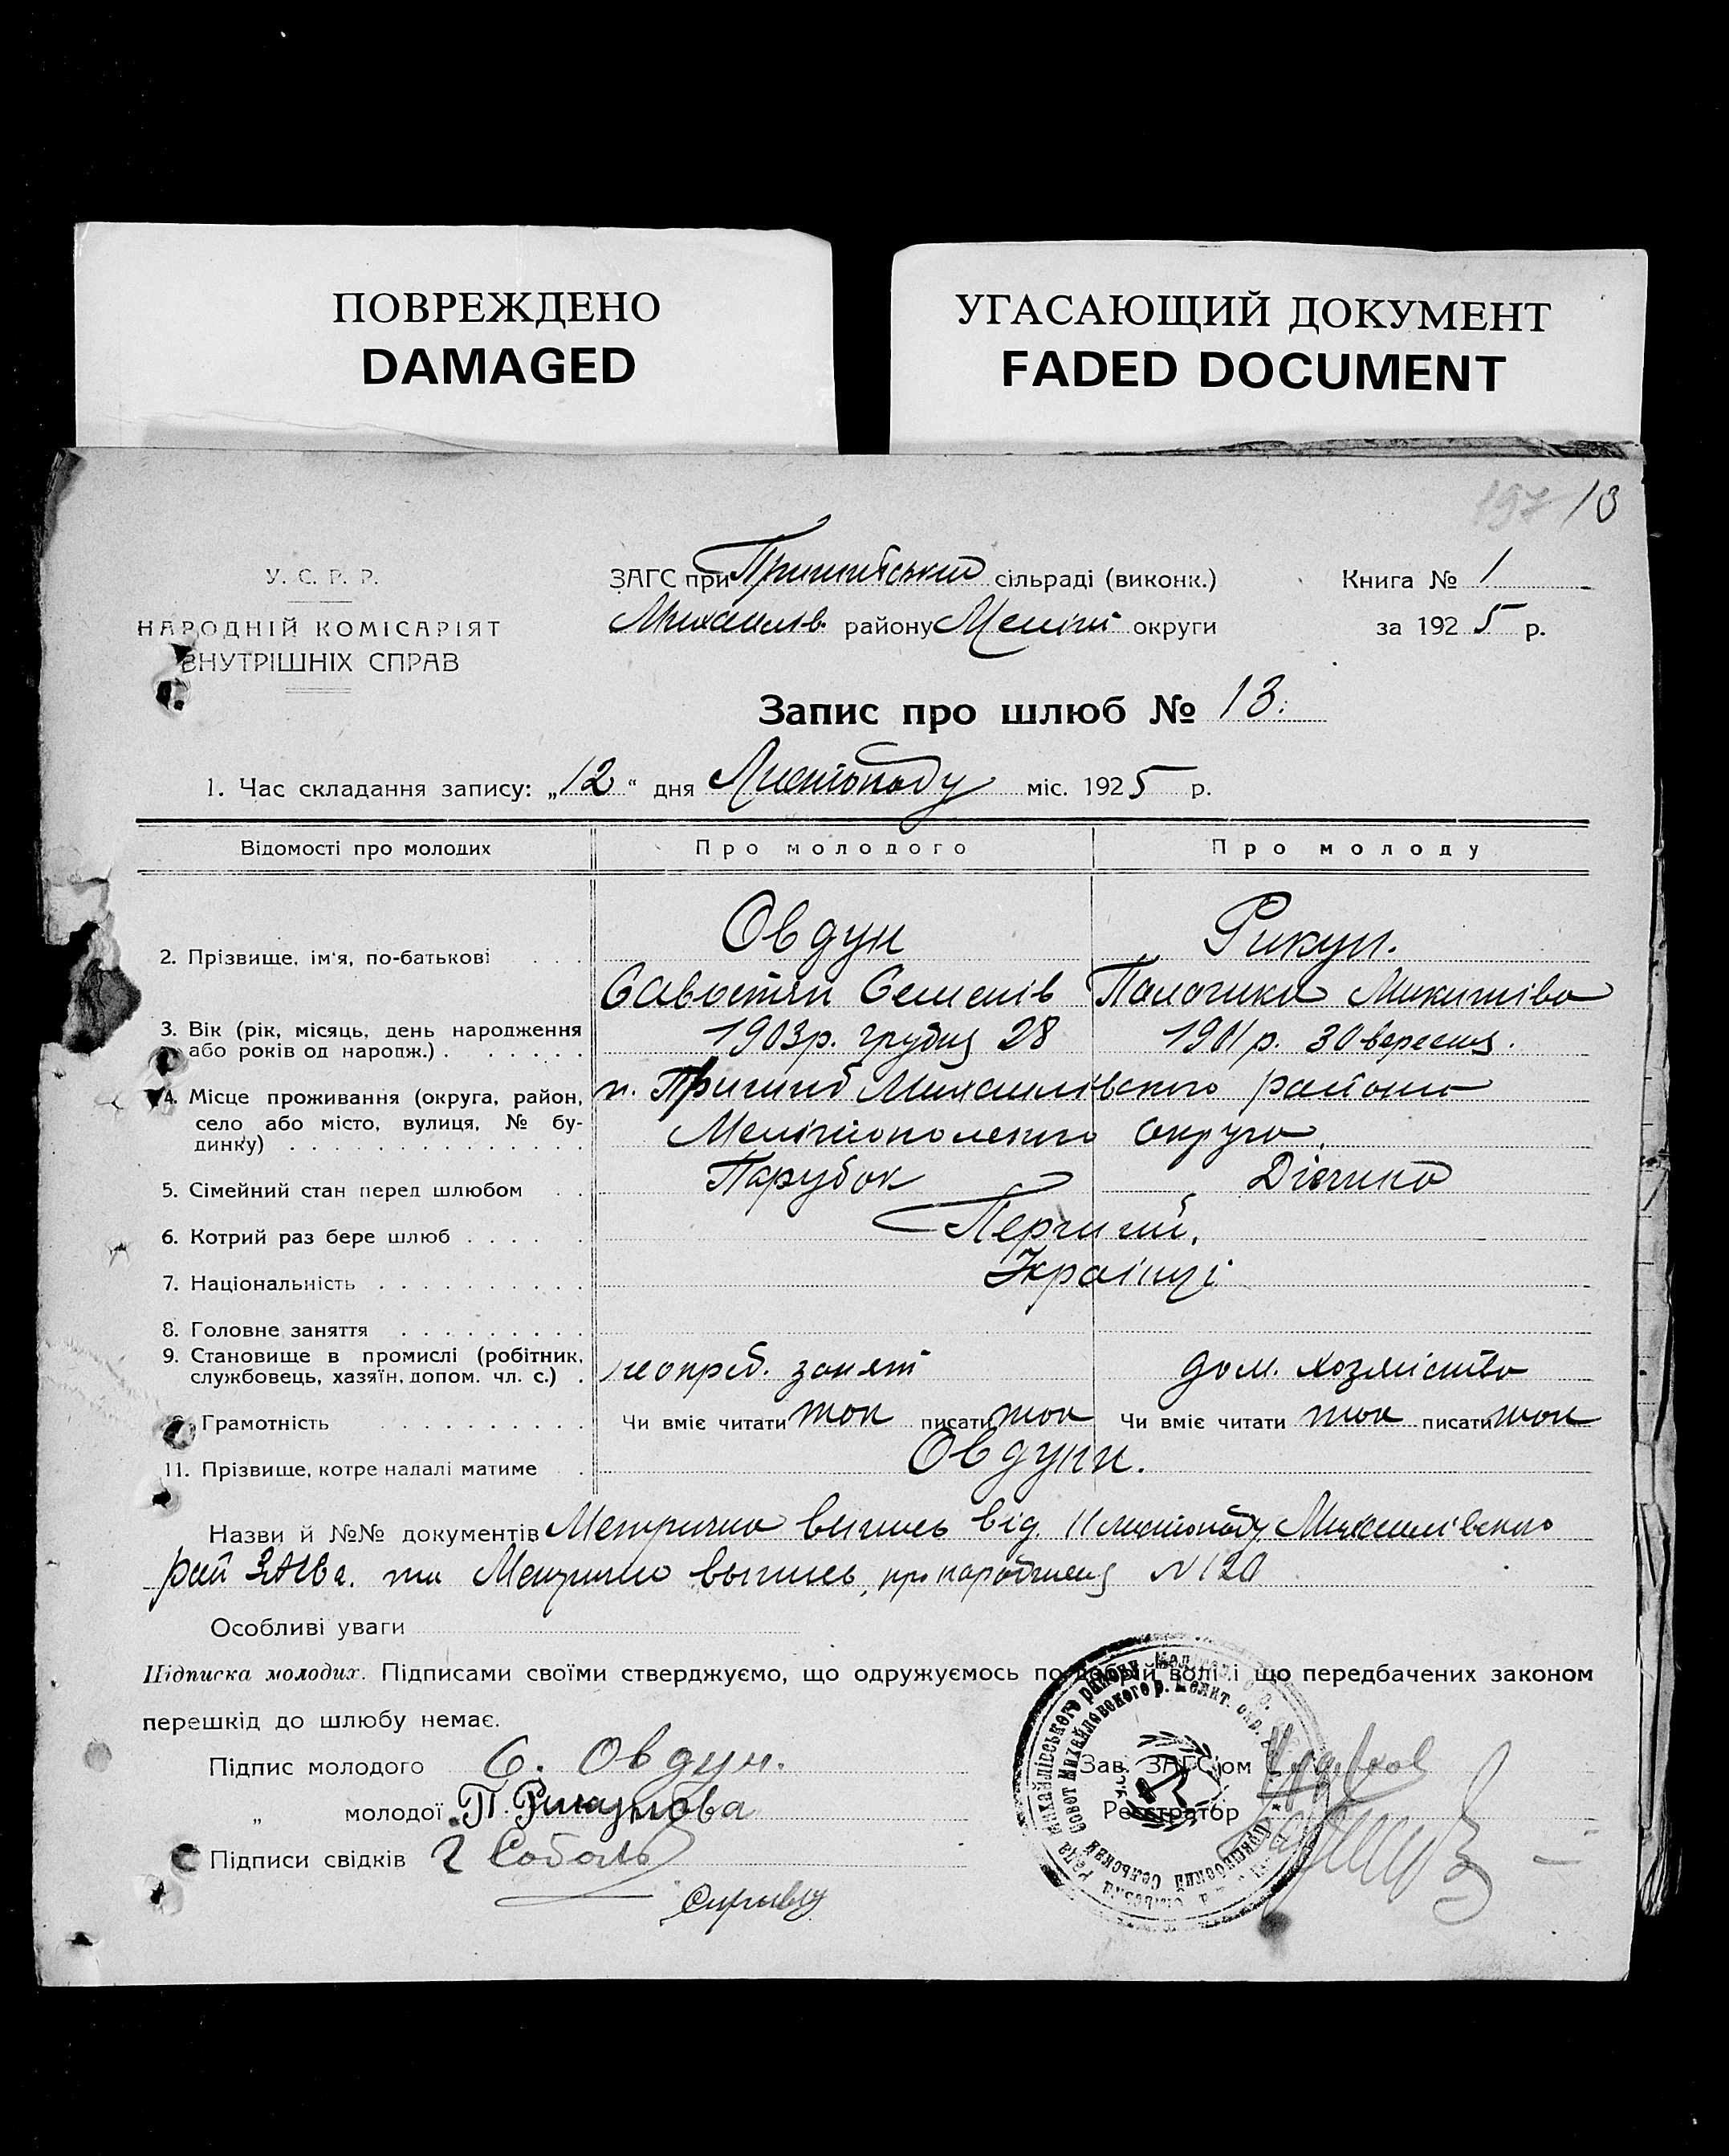 ПОВРЕЖДЕНО
DAMAGED
УГАСАЮЩИЙ ДОКУМЕНТ
FADED DOCUMENT
197 13
У. С. Р. Р.
НАРОДНІЙ КОМІСАРІЯТ
ВНУТРІШНІХ СПРАВ
ЗАГС при Пришибській сільраді (виконк.)
Михайлів. району Меліт. округи
Книга № 1
за 1925 р.
Запис про шлюб № 13.
1. Час складання запису: „12“ дня Листопаду міс. 1925 р.
Відомості про молодих Про молодого Про молоду
2. Прізвище, ім'я, по-батькові Овдун Рикун.
Савостян Семенів Палогика Микитівна
3. Вік (рік, місяць, день народження або років од народж.) 1903р. грудня 28 1901р. 30 вересня.
4. Місце проживання (округа, район, село або місто, вулиця, № будинку) п. Пришиб Михайлівського району
Мелітопольського округа.
5. Сімейний стан перед шлюбом Парубок Дівчина
6. Котрий раз бере шлюб Перший.
7. Національність Українці
8. Головне заняття
9. Становище в промислі (робітник, службовець, хазяїн, допом. чл. с.) занят дом. хозяйство
Грамотність Чи вміє читати так писати так Чи вміє читати так писати так
11. Прізвище, котре надалі матиме Овдуни.
Назви й №№ документів Метрична випись від 11 листопаду Михайлівского
рай ЗАГСа. та Метрично выпись, про народження N 120
Особливі уваги
Підписка молодих. Підписами своїми стверджуємо, що одружуємось по добрій волі і що передбачених законом
перешкід до шлюбу немає.
Підпис молодого С. Овдун.
„ молодої П. Рикунова
Підписи свідків Г Соболь
Зав. ЗАГС'ом
Реєстратор
Рада Михайлівського району
Совет Михайловского р. Мелит. окр.